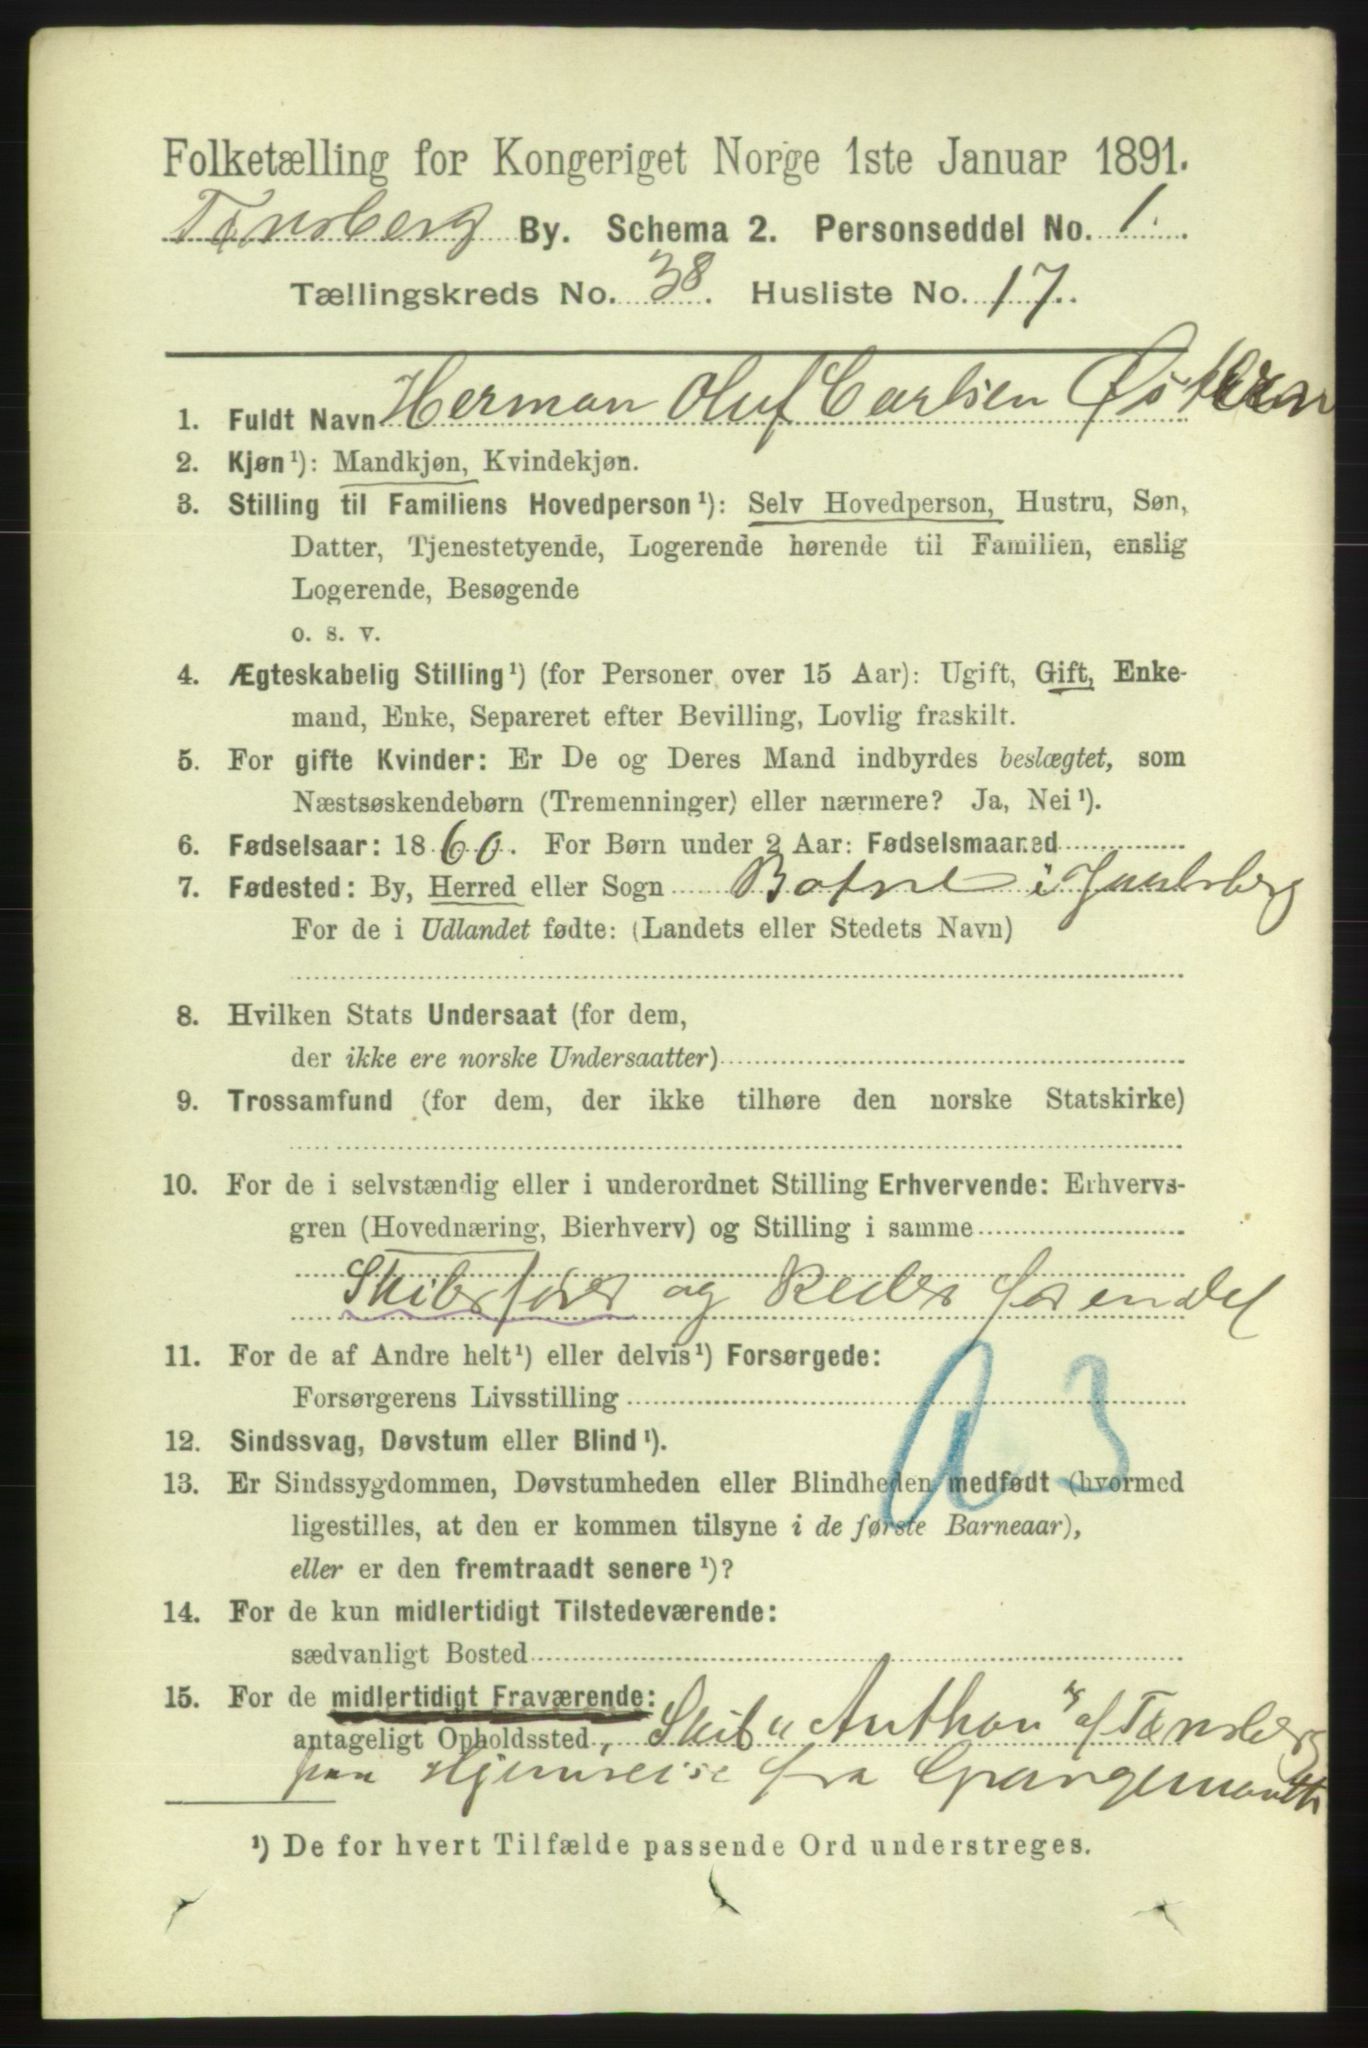 Folketælling for Kongeriget Norge 1ste Januar 1891.
Tønsberg By. Schema 2. Personseddel No. 1.
Tællingskreds No. 38. Husliste No. 17.
1. Fuldt Navn Herman Oluf Carlsen
2. Kjøn¹): Mandkjøn, Kvindekjøn.
3. Stilling til Familiens Hovedperson¹): Selv Hovedperson, Hustru, Søn,
Datter, Tjenestetyende, Logerende hørende til Familien, enslig
Logerende, Besøgende
o. s. v.
4. Ægteskabelig Stilling¹) (for Personer over 15 Aar): Ugift, Gift, Enke-
mand, Enke, Separeret efter Bevilling, Lovlig fraskilt.
5. For gifte Kvinder: Er De og Deres Mand indbyrdes beslægtet, som
Næstsøskendebørn (Tremenninger) eller nærmere? Ja, Nei¹).
6. Fødselsaar: 1860. For Børn under 2 Aar: Fødselsmaaned
7. Fødested: By, Herred eller Sogn Botne i Jarlsberg
For de i Udlandet fødte: (Landets eller Stedets Navn)
8. Hvilken Stats Undersaat (for dem,
der ikke ere norske Undersaatter)
9. Trossamfund (for dem, der ikke tilhøre den norske Statskirke)
10. For de i selvstændig eller i underordnet Stilling Erhvervende: Erhvervs-
gren (Hovednæring, Bierhverv) og Stilling i samme
Skibsfører og Reder for en Del
11. For de af Andre helt¹) eller delvis¹) Forsørgede:
Forsørgerens Livsstilling
a 3
12. Sindssvag, Døvstum eller Blind¹).
13. Er Sindssygdommen, Døvstumheden eller Blindheden medfødt (hvormed
ligestilles, at den er kommen tilsyne i de første Barneaar),
eller er den fremtraadt senere¹)?
14. For de kun midlertidigt Tilstedeværende:
sædvanligt Bosted
15. For de midlertidigt Fraværende:
antageligt Opholdssted, Skib "Anthon" af Tønsberg
paa Hjemreise fra Grangemouth
¹) De for hvert Tilfælde passende Ord understreges.